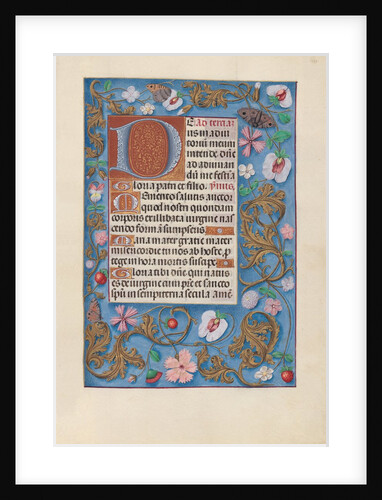 E Ad tertiā
D us in adiu
toriū meum
intende. Dñe
ad adiuuan
dū me festi
Gloria patri et filio. Ymnus.
Memento salutis auctor
quod nostri quondam
corporis ex illibata uirgine nas
cendo formā sumpseris.
Maria mater gratie mater
misericordie tu nos ab hoste p
tege in hora mortis suscipe.
Gloria tibi dñe qui natus
es de uirgine cum pr̄e et sanc̄to
spū in sempiterna secula amē.